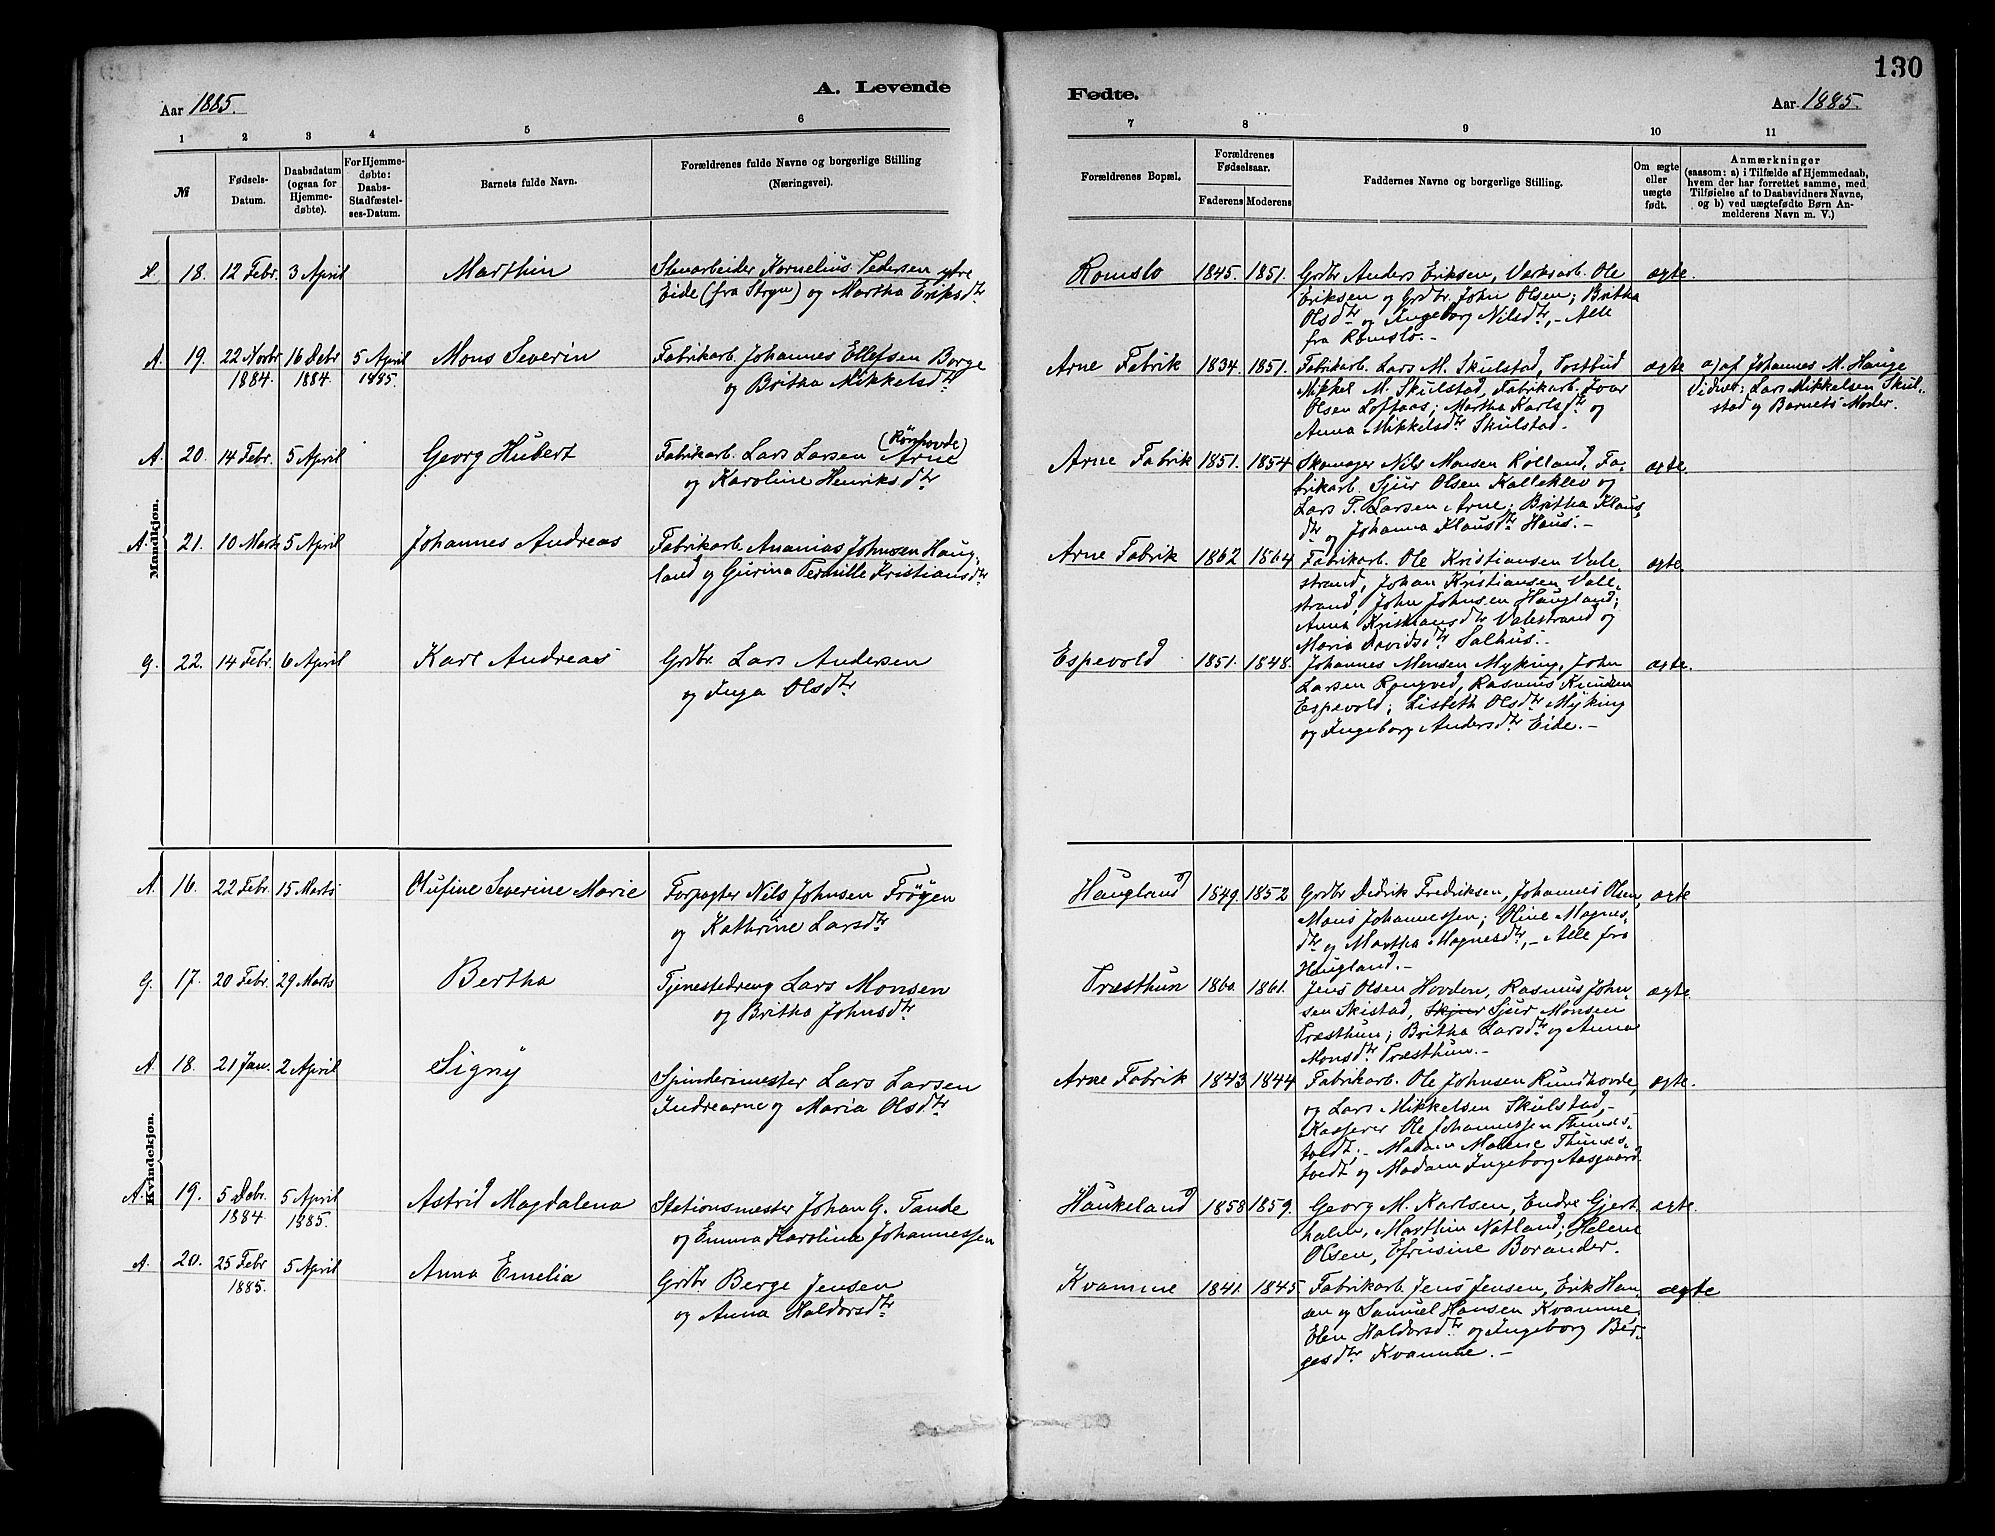 130
A. Levende
Fødte.
Aar 1885.
Aar 1885.
1 2 3 4 5 6
7 8 9 10 11
№
Fødsels-
Datum.
Daabsdatum
(ogsaa for
Hjemme-
døbte).
For Hjemme-
døbte:
Daabs-
Stadfæstel-
ses-Datum.
Barnets fulde Navn.
Forældrenes fulde Navne og borgerlige Stilling
(Næringsvei).
Forældrenes Bopæl.
Forældrenes
Fødselsaar.
Faderens Moderens
Faddernes Navne og borgerlige Stilling.
Om ægte
eller
uægte
født.
Anmærkninger
(saasom: a) i Tilfælde af Hjemmedaab,
hvem der har forrettet samme, med
Tilføielse af to Daabsvidners Navne,
og b) ved uægtefødte Børn An-
melderens Navn m. V.)
Mandkjøn.
18. 12 Febr. 3 April Marthin Stenarbeider Kornelius Pedersen ytre
Eide (fra Stryn) og Martha Eriksdtr
Romslo 1845. 1851. Grdbr Anders Eriksen, Verksarb. Ole ægte
Eriksen og Grdbr. John Olsen; Britha
Olsdtr og Ingeborg Nilsdtr, - Alle
fra Romslo. -
A. 19. 22 Novbr 16 Debr 5 April Mons Severin Fabrikarb. Johannes Ellefsen Borge
1884. 1884. 1885. og Britha Mikkelsdtr
Arne Fabrik 1834. 1851. Fabrikarb. Lars M. Skulstad, Postbud ægte a) af Johannes M. Hauge
Mikkel M. Skulstad, Fabrikarb. Ivar Vidner: Lars Mikkelsen Skul-
Olsen Loftaas; Martha Karlsdtr og stad og Barnets Moder.
Anna Mikkelsdtr Skulstad.
A. 20. 14 Febr. 5 April Georg Hubert Fabrikarb. Lars Larsen Arne
og Karoline Henriksdtr
Arne Fabrik 1851. 1854 Skomager Nils Monsen Rolland, Fa- ægte.
brikarb. Sjur Olsen Kalleklev og
Lars T. Larsen Arne; Britha Klaus-
dtr og Johanna Klausdtr Haus. -
A. 21. 10 Marts 5 April Johannes Andreas Fabrikarb. Ananias Johnsen Haug-
land og Gurina Pernille Kristiansdtr
Arne Fabrik 1862 1864 Fabrikarb. Ole Kristiansen Vale- ægte.
strand, Johan Kristiansen Vale-
strand, John Johnsen Haugland;
Anna Kristiansdtr Valestrand og
Maria Davidsdtr Salhus. -
G. 22. 14 Febr. 6 April Karl Andreas Grdbr. Lars Andersen
og Inga Olsdtr
Espevold 1851. 1848. Johannes Monsen Myking, John ægte.
Larsen Rongved, Rasmus Knudsen
Espevold; Lisbeth Olsdtr Myking
og Ingeborg Andersdtr Eide. -
Kvindekjøn.
A. 16. 22 Febr. 15 Marts Olufine Severine Marie Forpagter Nils Johnsen Frøyen
og Kathrine Larsdtr
Haugland 1849. 1852 Grdbr Didrik Fredriksen, Johannes Olsen, ægte
Mons Johannessen; Oline Magnes-
dtr og Martha Magnesdtr, - Alle fra
Haugland. -
G. 17. 20 Febr. 29 Marts Bertha Tjenestedreng Lars Monsen
og Britha Johnsdtr
Træsthun 1860. 1861. Jens Olsen Hovden, Rasmus John- ægte.
sen Skistad, Sjur Monsen
Træsthun; Britha Larsdtr og Anna
Monsdtr Træsthun. -
A. 18. 21 Jan. 2 April Signy Spinderimester Lars Larsen
Indrearne og Maria Olsdtr
Arne Fabrik 1843 1844 Fabrikarb. Ole Johnsen Rundhovde, ægte.
og Lars Mikkelsen Skulstad, -
Kasserer Ole Johannessen Thunes-
tvedt; - Madam Malene Thunes-
tvedt og Madam Ingeborg Aasgaard
A. 19. 5 Debr. 5 April Astrid Magdalena Stationsmester Johan G. Tande
1884 1885. og Emma Karoline Johannessen
Haukeland 1858 1859. Georg M. Karlsen, Endre Gjert ægte.
holm, Marthin Natland; Helene
Olsen, Efrusine Borander.
A. 20. 25 Febr 5 April Anna Emelia Grdbr Berge Jensen
1885. og Anna Haldorsdtr
Kvamme 1841. 1845. Fabrikarb. Jens Jensen, Erik Han- ægte
sen og Samuel Hansen Kvamme.
Elen Haldorsdtr og Ingeborg Ber-
gesdtr Kvamme. -